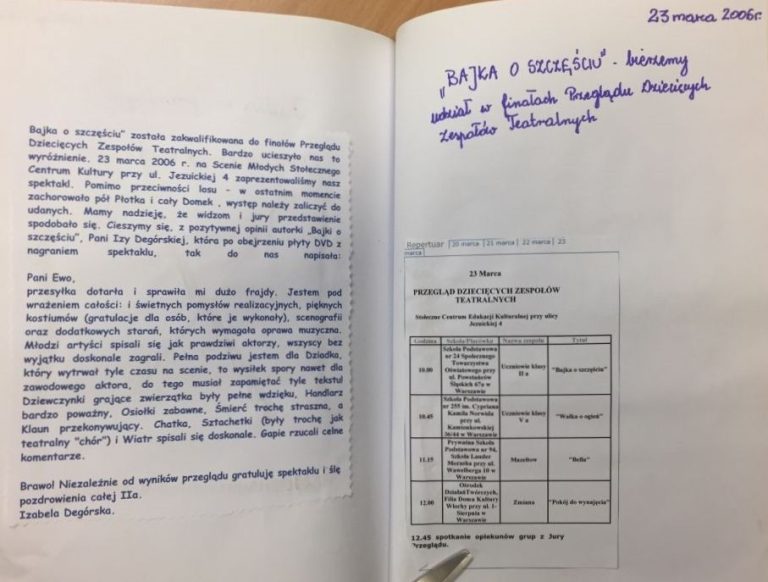 Bajka o szczęściu” została zakwalifikowana do finałów Przeglądu
Dziecięcych Zespołów Teatralnych. Bardzo ucieszyło nas to
wyróżnienie. 23 marca 2006 r. na Scenie Młodych Stołecznego
Centrum Kultury przy ul. Jezuickiej 4 zaprezentowaliśmy nasz
spektakl. Pomimo przeciwności losu - w ostatnim momencie
zachorowało pół Płotka i cały Domek , występ należy zaliczyć do
udanych. Mamy nadzieję, że widzom i jury przedstawienie
spodobało się. Cieszymy się, z pozytywnej opinii autorki „Bajki o
szczęściu”, Pani Izy Degórskiej, która po obejrzeniu płyty DVD z
nagraniem spektaklu, tak do nas napisała:
Pani Ewo,
przesyłka dotarła i sprawiła mi dużo frajdy. Jestem pod
wrażeniem całości: i świetnych pomysłów realizacyjnych, pięknych
kostiumów (gratulacje dla osób, które je wykonały), scenografii
oraz dodatkowych starań, których wymagała oprawa muzyczna.
Młodzi artyści spisali się jak prawdziwi aktorzy, wszyscy bez
wyjątku doskonale zagrali. Pełna podziwu jestem dla Dziadka,
który wytrwał tyle czasu na scenie, to wysiłek spory nawet dla
zawodowego aktora, do tego musiał zapamiętać tyle tekstu!
Dziewczynki grające zwierzątka były pełne wdzięku, Handlarz
bardzo poważny, Osiołki zabawne, Śmierć trochę straszna, a
Klaun przekonywujący. Chatka, Sztachetki (były trochę jak
teatralny “chór”) i Wiatr spisali się doskonale. Gapie rzucali celne
komentarze.
Brawo! Niezależnie od wyników przeglądu gratuluję spektaklu i ślę
pozdrowienia całej IIa.
Izabela Degórska.
23 marca 2006r.
„BAJKA O SZCZĘŚCIU” - bierzemy
udział w finałach Przeglądu Dziecięcych
Zespołów Teatralnych
Repertuar | 20 marca | 21 marca | 22 marca | 23
marca
23 Marca
PRZEGLĄD DZIECIĘCYCH ZESPOŁÓW
TEATRALNYCH
Stołeczne Centrum Edukacji Kulturalnej przy ulicy
Jezuickiej 4
Godzina Szkoła/Placówka Nazwa zespołu Tytuł
10.00 Szkoła Podstawowa nr 24 Społecznego Towarzystwa Oświatowego przy ul. Powstańców Śląskich 67a w Warszawie Uczniowie klasy II a "Bajka o szczęściu"
10.45 Szkoła Podstawowa nr 255 im. Cypriana Kamila Norwida przy ul. Kamionkowskiej 36/44 w Warszawie Uczniowie klasy V a "Walka o ogień"
11.15 Prywatna Szkoła Podstawowa nr 94, Szkoła Lauder Morasha przy ul. Wawelberga 10 w Warszawie Mazeltow "Bella"
12.00 Ośrodek DziałańTwórczych, Filia Domu Kultury Włochy przy ul. 1-Sierpnia w Warszawie Zmiana "Pokój do wynajęcia"
12.45 spotkanie opiekunów grup z Jury
Przeglądu.